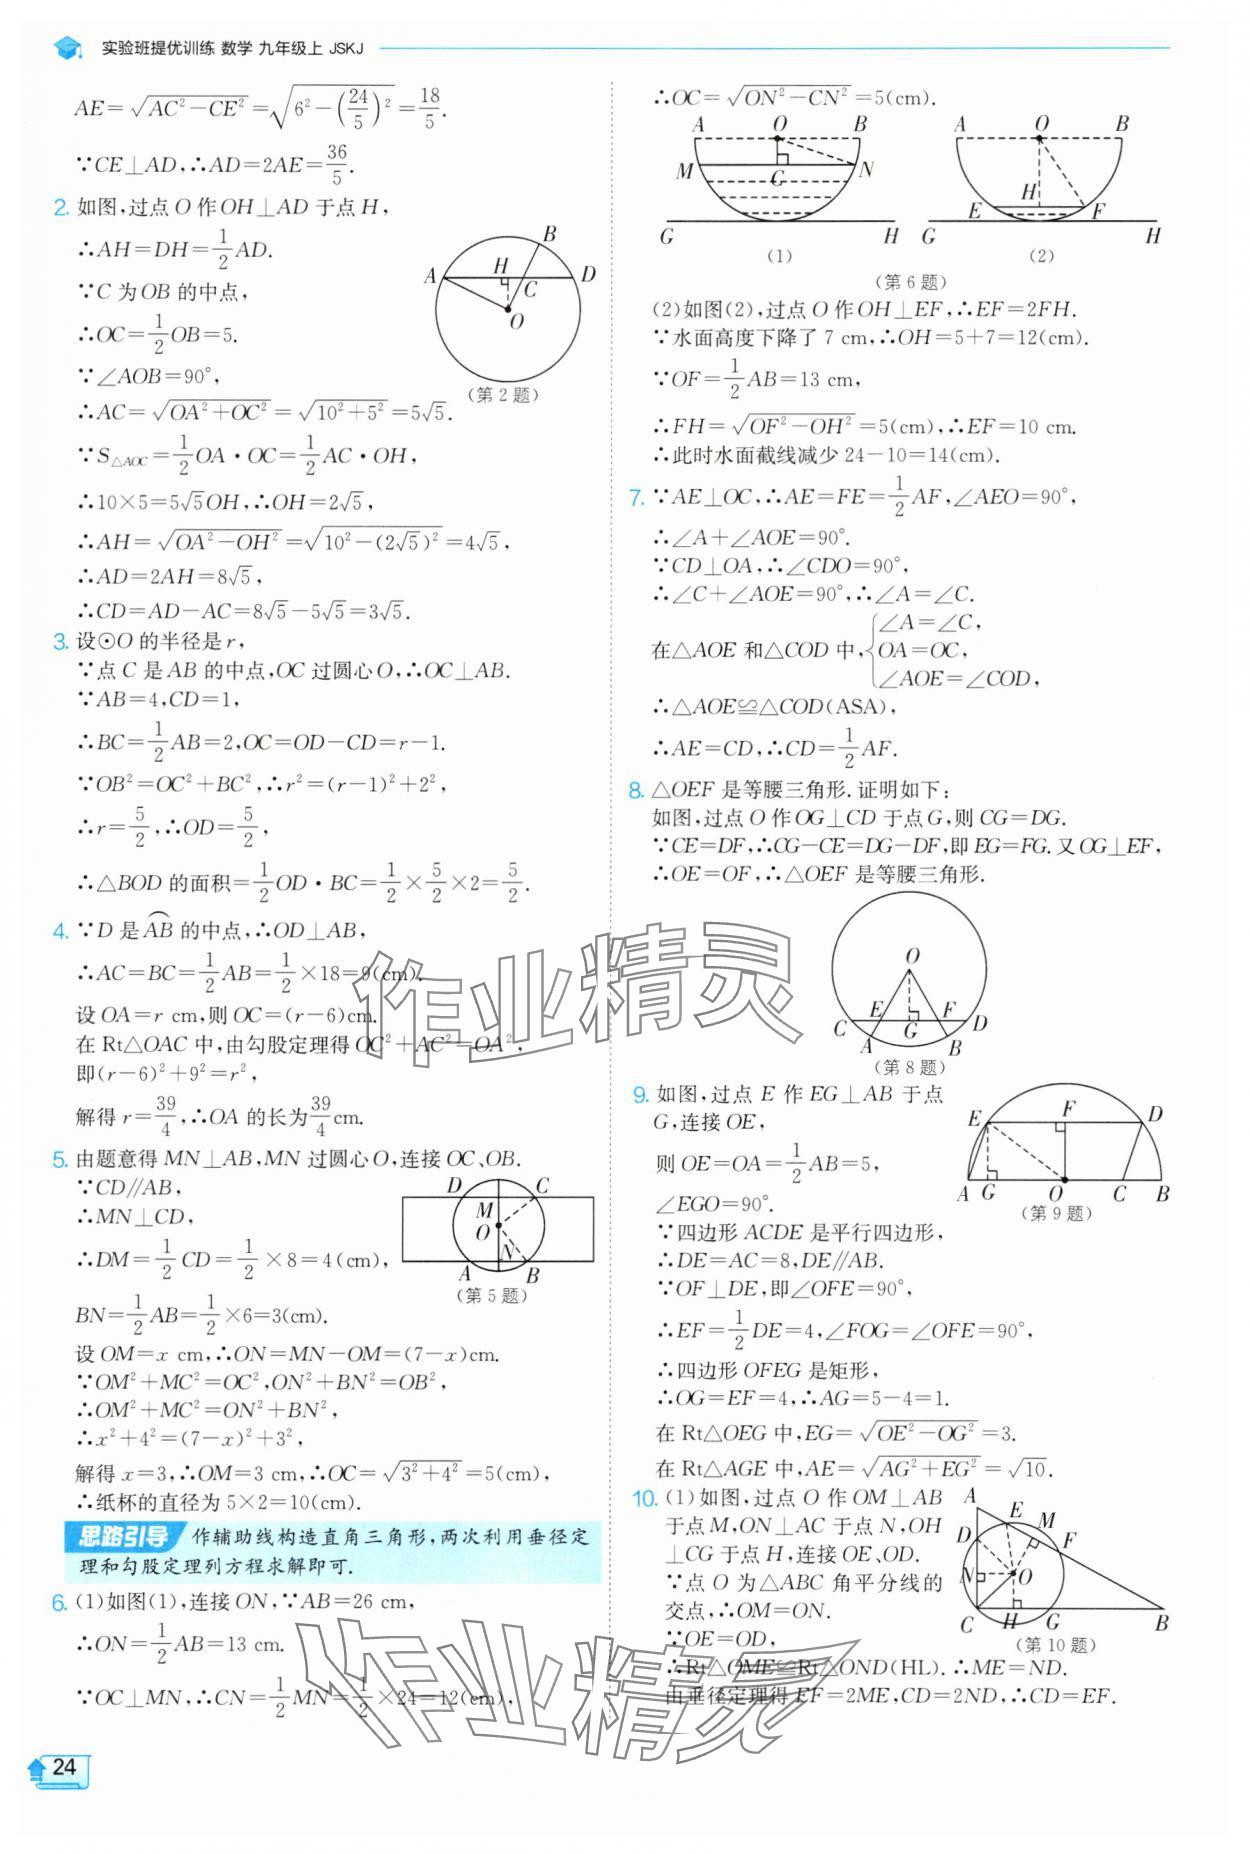 实验班提优训练 数学 九年级上 JSKJ
AE=√(AC²-CE²)=√(6²-(24/5)²)=18/5.
∵CE⊥AD,∴AD=2AE=36/5.
2. 如图,过点 O 作 OH⊥AD 于点 H,
∴AH=DH=1/2AD.
∵C 为 OB 的中点,
∴OC=1/2OB=5.
∵∠AOB=90°,
∴AC=√(OA²+OC²)=√(10²+5²)=5√5.
∵S△AOC=1/2OA·OC=1/2AC·OH,
∴10×5=5√5OH,∴OH=2√5,
∴AH=√(OA²-OH²)=√(10²-(2√5)²)=4√5,
∴AD=2AH=8√5,
∴CD=AD-AC=8√5-5√5=3√5.
A H B C D O
(第2题)
3. 设⊙O 的半径是 r,
∵点 C 是 AB 的中点,OC 过圆心 O,∴OC⊥AB.
∵AB=4,CD=1,
∴BC=1/2AB=2,OC=OD-CD=r-1.
∵OB²=OC²+BC²,∴r²=(r-1)²+2²,
∴r=5/2,∴OD=5/2,
∴△BOD 的面积=1/2OD·BC=1/2×5/2×2=5/2.
4. ∵D 是⌒AB 的中点,∴OD⊥AB,
∴AC=BC=1/2AB=1/2×18=9(cm).
设 OA=r cm,则 OC=(r-6)cm.
在 Rt△OAC 中,由勾股定理得 OC²+AC²=OA²,
即(r-6)²+9²=r²,
解得 r=39/4,∴OA 的长为39/4cm.
5. 由题意得 MN⊥AB,MN 过圆心 O,连接 OC、OB.
∵CD∥AB,
∴MN⊥CD,
∴DM=1/2CD=1/2×8=4(cm),
BN=1/2AB=1/2×6=3(cm).
D C M O N A B
(第5题)
设 OM=x cm,∴ON=MN-OM=(7-x)cm.
∵OM²+MC²=OC²,ON²+BN²=OB²,
∴OM²+MC²=ON²+BN²,
∴x²+4²=(7-x)²+3²,
解得 x=3,∴OM=3 cm,∴OC=√(3²+4²)=5(cm),
∴纸杯的直径为 5×2=10(cm).
思路引导 作辅助线构造直角三角形,两次利用垂径定
理和勾股定理列方程求解即可.
6. (1)如图(1),连接 ON,∵AB=26 cm,
∴ON=1/2AB=13 cm.
∵OC⊥MN,∴CN=1/2MN=1/2×24=12(cm),
24
∴OC=√(ON²-CN²)=5(cm).
A O B M C N G H
(1)
A O B H E F G H
(2)
(第6题)
(2)如图(2),过点 O 作 OH⊥EF,∴EF=2FH.
∵水面高度下降了 7 cm,∴OH=5+7=12(cm).
∵OF=1/2AB=13 cm,
∴FH=√(OF²-OH²)=5(cm),∴EF=10 cm.
∴此时水面截线减少 24-10=14(cm).
7. ∵AE⊥OC,∴AE=FE=1/2AF,∠AEO=90°,
∴∠A+∠AOE=90°.
∵CD⊥OA,∴∠CDO=90°,
∴∠C+∠AOE=90°,∴∠A=∠C.
∠A=∠C,
在△AOE 和△COD 中,{OA=OC,
∠AOE=∠COD,
∴△AOE≌△COD(ASA),
∴AE=CD,∴CD=1/2AF.
8. △OEF 是等腰三角形.证明如下:
如图,过点 O 作 OG⊥CD 于点 G,则 CG=DG.
∵CE=DF,∴CG-CE=DG-DF,即 EG=FG.又 OG⊥EF,
∴OE=OF,∴△OEF 是等腰三角形.
O E F C G D A B
(第8题)
9. 如图,过点 E 作 EG⊥AB 于点
G,连接 OE,
则 OE=OA=1/2AB=5,
∠EGO=90°.
E F D A G O C B
(第9题)
∵四边形 ACDE 是平行四边形,
∴DE=AC=8,DE∥AB.
∵OF⊥DE,即∠OFE=90°,
∴EF=1/2DE=4,∠FOG=∠OFE=90°,
∴四边形 OFEG 是矩形,
∴OG=EF=4,∴AG=5-4=1.
在 Rt△OEG 中,EG=√(OE²-OG²)=3.
在 Rt△AGE 中,AE=√(AG²+EG²)=√10.
10. (1)如图,过点 O 作 OM⊥AB
于点 M,ON⊥AC 于点 N,OH
⊥CG 于点 H,连接 OE、OD.
∵点 O 为△ABC 角平分线的
交点,∴OM=ON.
∵OE=OD,
∴Rt△OME≌Rt△OND(HL).∴ME=ND.
由垂径定理得 EF=2ME,CD=2ND,∴CD=EF.
A E M D F N O C H G B
(第10题)
作业精灵
作业精灵